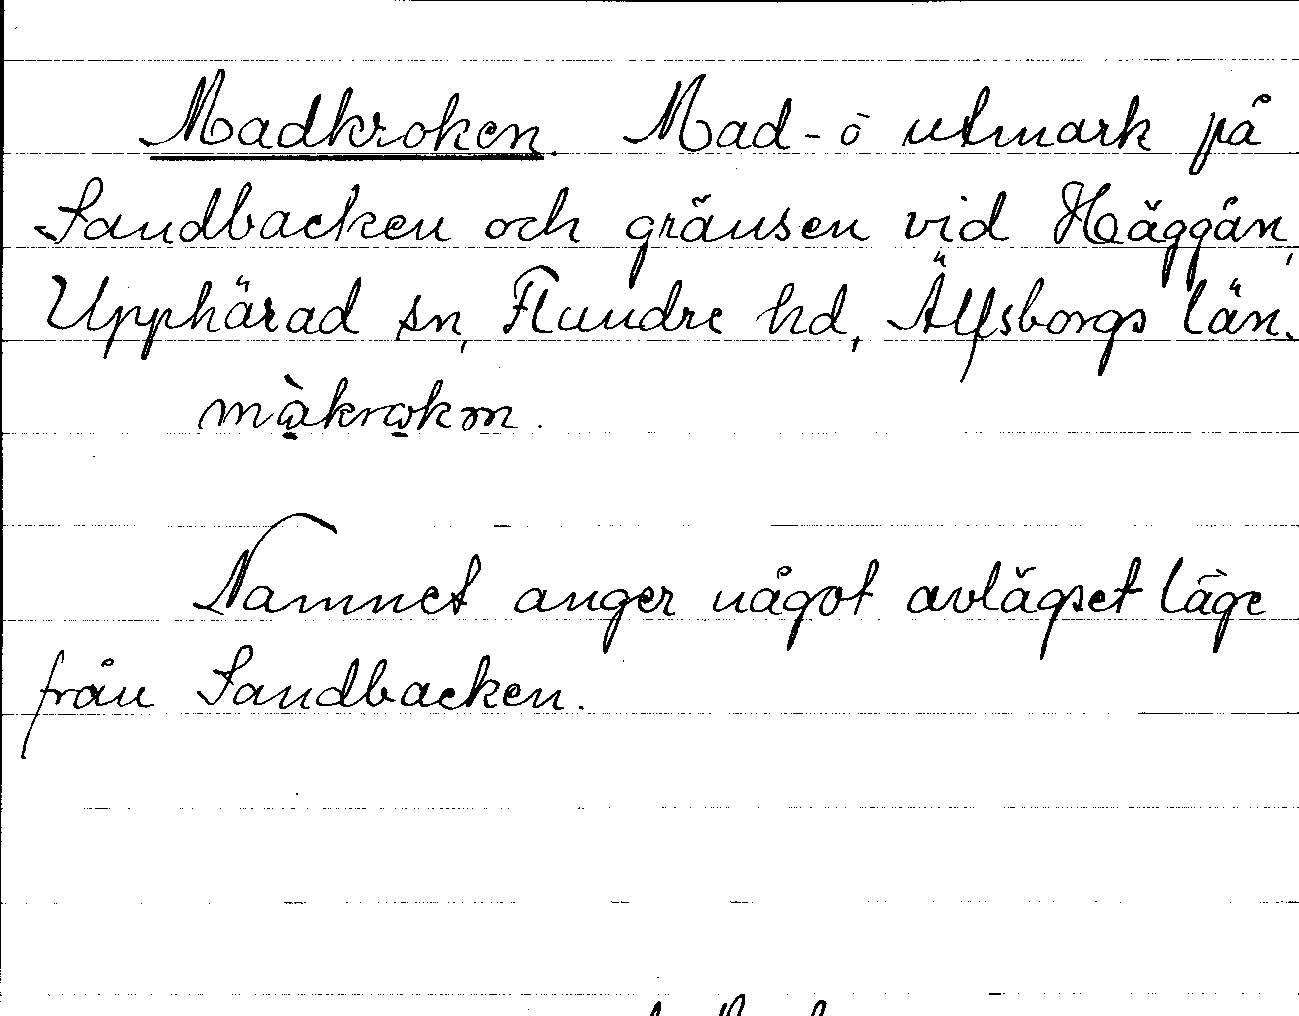 Madkroken. Mad- o utmark på
Sandbacken och gränsen vid Häggån,
Upphärad sn, Flundre hd, Älfsborgs län.
Namnet anger något avlägset läge
från Sandbacken.